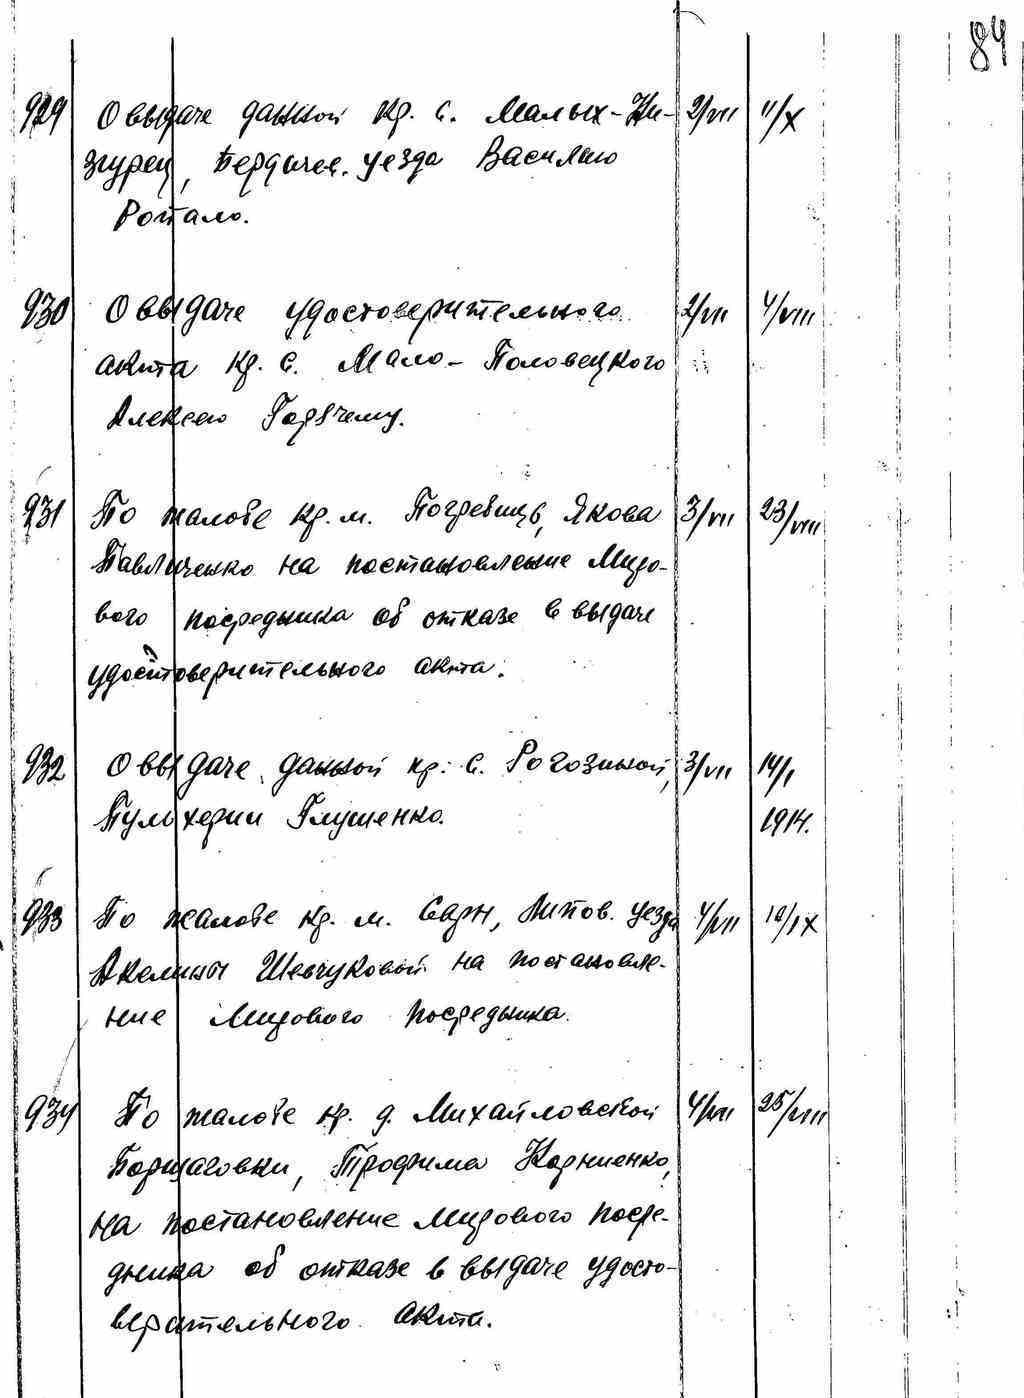 84
929 О выдаче данной кр. с. Малых-Ни- 2/VII 11/X
згурец, Бердичев. уезда Василию
Ропало.
930 О выдаче удостоверительного 2/VII 4/VIII
акта кр. с. Мало-Половецкого
Алексею
931 По жалобе кр. м. Погребищ, Якова 3/VII 23/VIII
Павличенко на постановление Миро-
вого посредника об отказе в выдаче
удостоверительного акта.
932 О выдаче данной кр. с. Рогозиной, 3/VII 14/I
Пульхерии Глущенко. 1914.
933 По жалобе кр. м. Сарн, Липов. уезда 4/VII 10/IX
Акелины Шевчуковой на постановле-
ние Мирового посредника.
934 По жалобе кр. д. Михайловской 4/VII 25/VIII
Борщаговки, Трофима Корниенко,
на постановление мирового посре-
дника об отказе в выдаче удосто-
верительного акта.